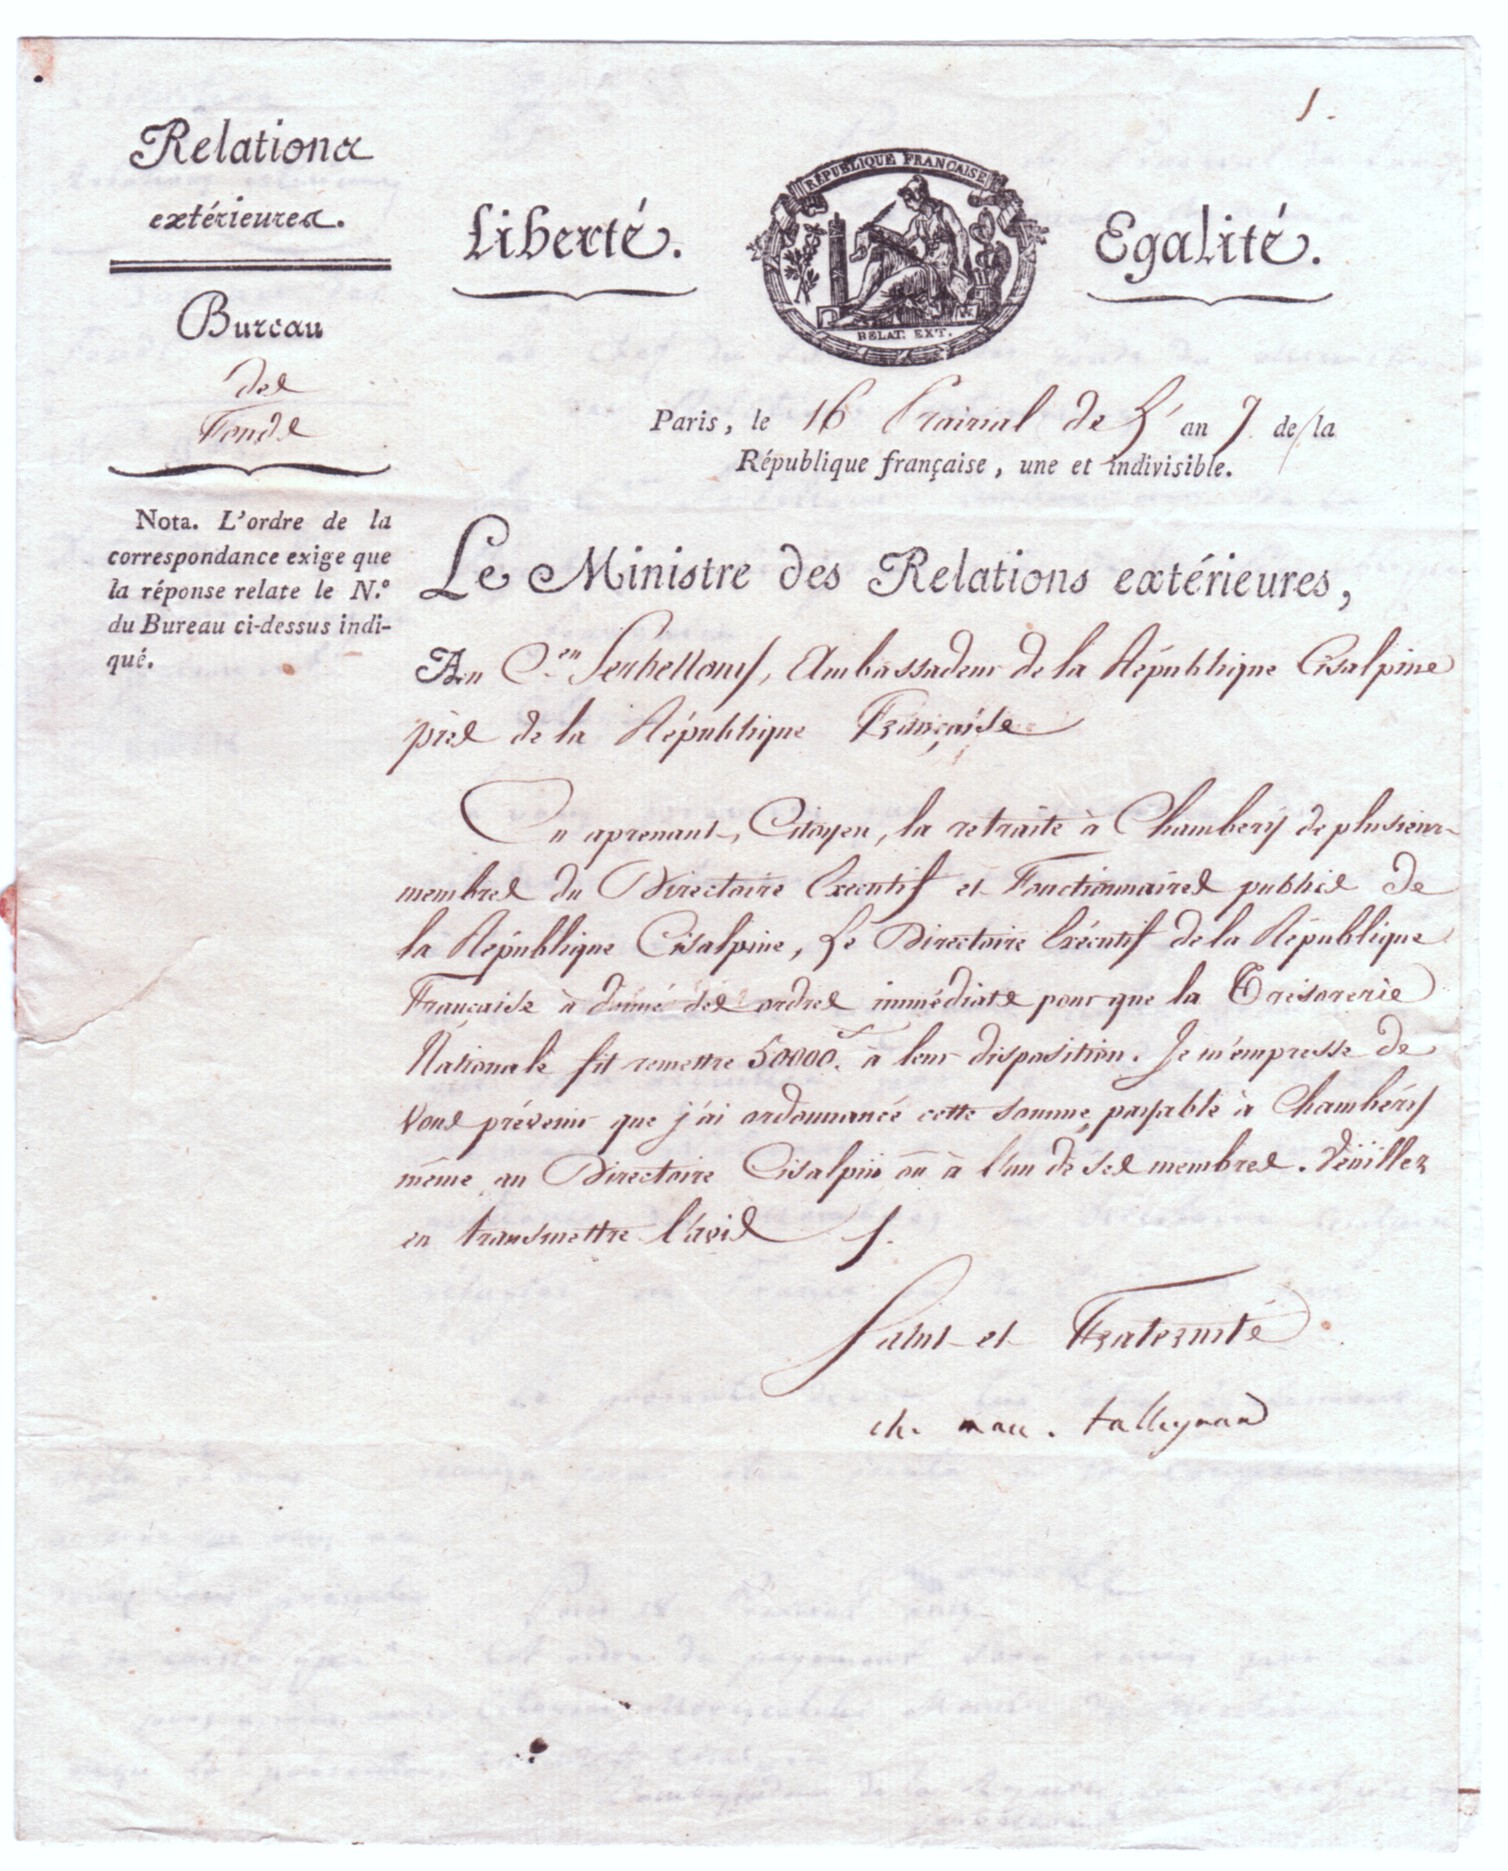 1.
Relations
extérieures.
Bureau
des
Fonds
Nota. L'ordre de la
correspondance exige que
la réponse relate le N.º
du Bureau ci-dessus indi-
qué.
Liberté.
RÉPUBLIQUE FRANÇAISE
RELAT. EXT.
Egalité.
Paris, le 16 Prairial de l'an 7. de la
République française, une et indivisible.
Le Ministre des Relations extérieures,
Au C.en Serbellony, Ambassadeur de la République Cisalpine
près de la République Française
En aprenant, Citoyen, la retraite à Chambery de plusieurs
membres du Directoire Executif et Fonctionnaires publics de
la République Cisalpine, Le Directoire Exécutif de la République
Française à donné des ordres immédiats pour que la Trésorerie
Nationale fit remettre 50000.f à leur disposition. Je m'empresse de
Vous prévenir que j'ai ordonnancé cette somme, payable à Chambéry
même au Directoire Cisalpin ou à l'un de ses membres. Veuillez
en transmettre l'avis /.
Salut et Fraternité
ch. mau. talleyrand